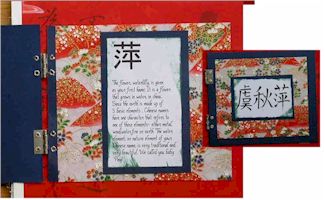 萍
The flower, waterlily, is given
as your first name. It is a flower
that grows in water or damp.
Since the earth is made up of
5 basic elements, Chinese names
have one character that refers to
one of these elements: either metal,
wood, water, fire or earth. The water
element, or nature element of your
Chinese name, is very traditional and
very beautiful. We called you baby
"Ping".
虞秋萍